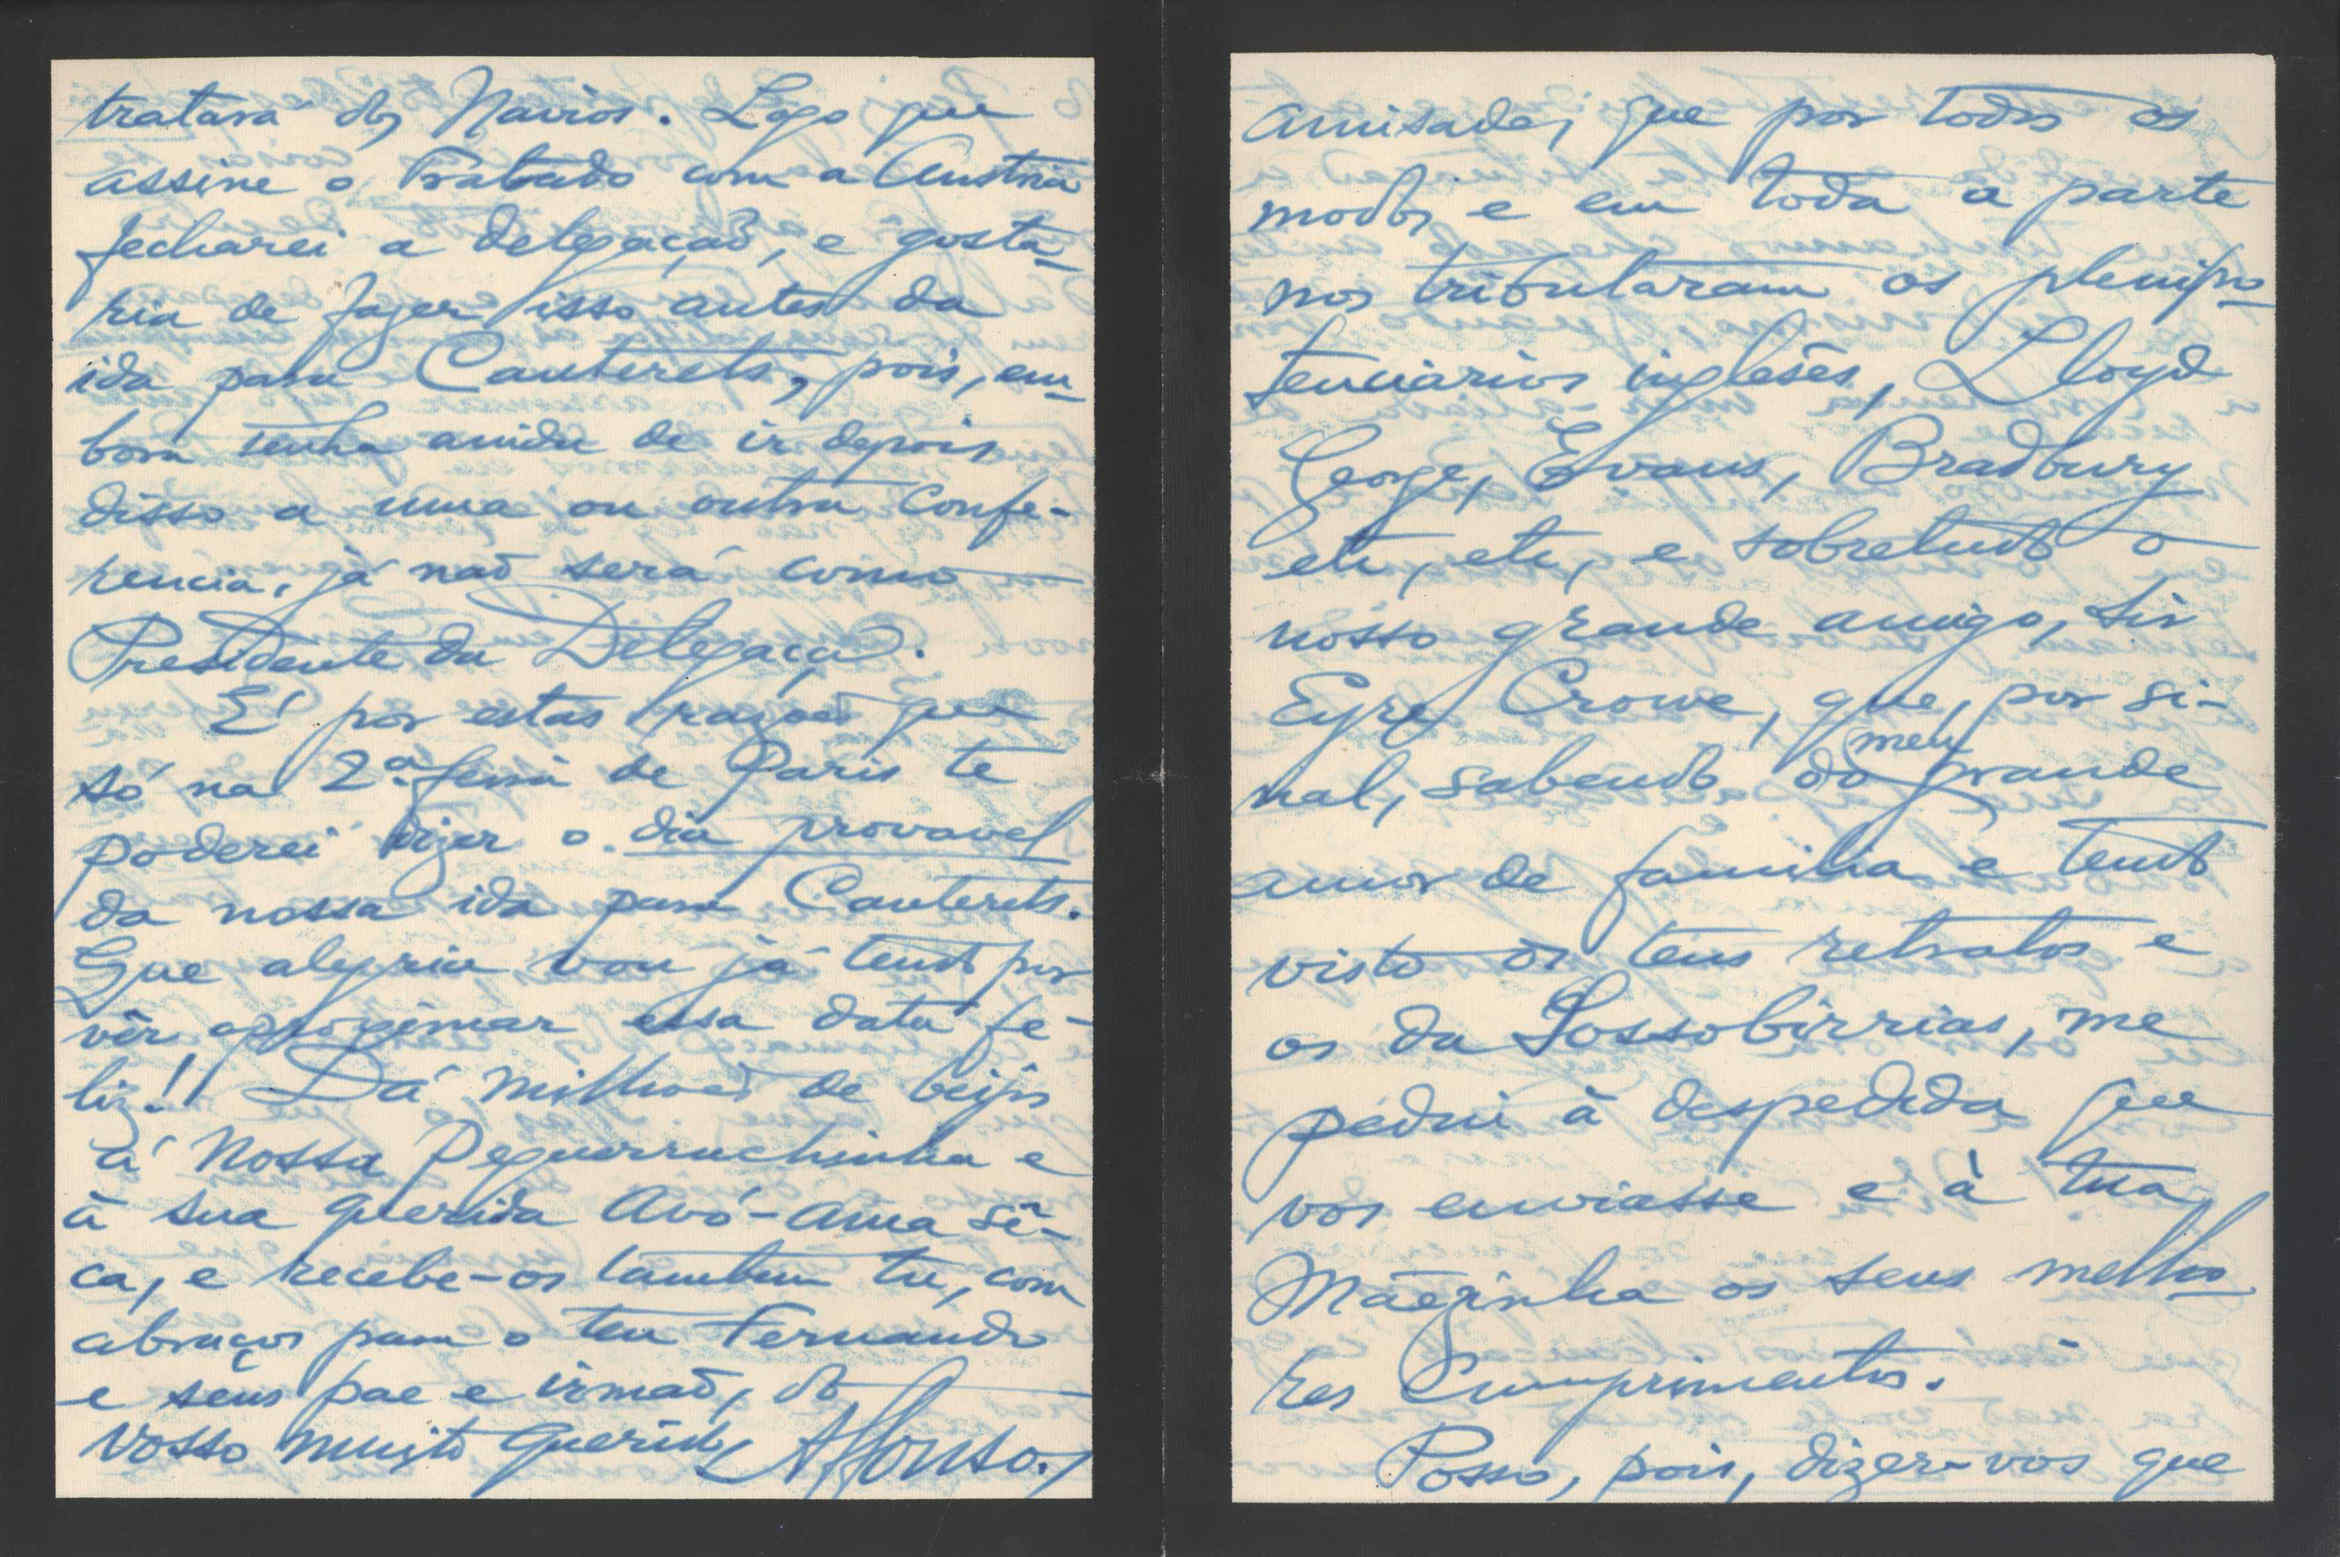 tratará dos Navios. Logo que
assine o Tratado com a Austria
fecharei a delegação, e gosta-
ria de fazer isso antes da
ida para Cauterets, pois, em-
bora tenha ainda de ir depois
disso a uma ou outra Confe-
rencia, já não será como
Presidente da Delegação.
É por estas razões que
só na 2.ª feira de Paris te
poderei dizer o dia provavel
da nossa ida para Cauterets.
Que alegria vou já tendo por
vêr aproximar essa data fe-
liz! Dá milhões de beijos
á Nossa Pequerruchinha e
à sua querida Avó-Ama Sê-
ca, e recebe-os tambem tu, com
abraços para o teu Fernando
e seus pae e irmão, do
vosso muito querido Affonso.
amisade, que por todos os
modos e em toda a parte
nos tributaram os plenipo-
tenciarios inglêses, Lloyd
George, Evans, Bradbury
etc, etc, e sobretudo o
nosso grande amigo, Sir
Eyre Crowe, que, por si-
nal, sabendo do meu grande
amor de familia e tendo
visto os teus retratos e
os da Sossobirrias, me
pediu à despedida que
vos enviasse e à tua
Mãezinha os seus melho-
res Cumprimentos.
Posso, pois, dizer-vos que